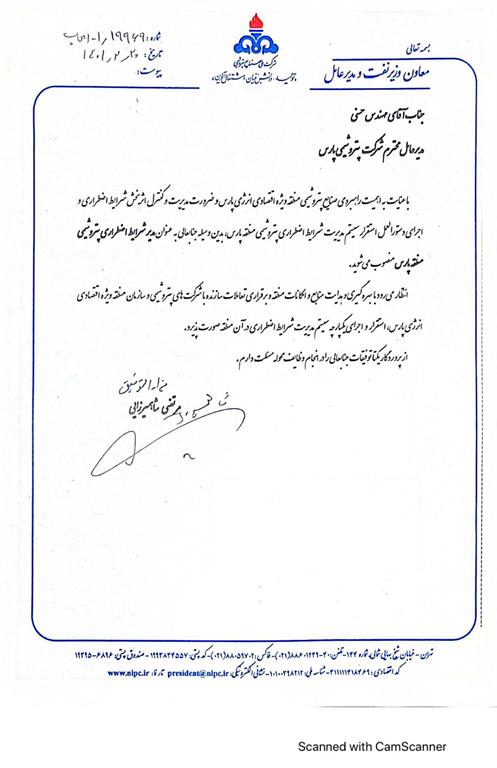 بسمه تعالی
معاون وزیر نفت و مدیرعامل
شرکت ملی صنایع پتروشیمی
شماره: ۱/۱۹۹۶۹-
تاریخ:
پیوست:
جناب آقای مهندس حسنی
مدیرعامل محترم شرکت پتروشیمی پارس
با عنایت به اهمیت راهبردی صنایع پتروشیمی منطقه ویژه اقتصادی انرژی پارس و ضرورت مدیریت و کنترل اثربخش شرایط اضطراری و
اجرای دستورالعمل استقرار سیستم مدیریت شرایط اضطراری پتروشیمی منطقه پارس، بدین وسیله جنابعالی به عنوان مدیر شرایط اضطراری پتروشیمی
منطقه پارس منصوب می شوید.
انتظار می رود با بهره گیری و هدایت منابع و امکانات منطقه و برقراری تعاملات سازنده با شرکت های پتروشیمی و سازمان منطقه ویژه اقتصادی
انرژی پارس، استقرار و اجرای یکپارچه سیستم مدیریت شرایط اضطراری در آن منطقه صورت پذیرد.
از پروردگار یکتا توفیقات جنابعالی را در انجام وظایف محوله مسئلت دارم.
و من الله التوفیق
مرتضی شاهمیرزایی
تهران - خیابان شیخ بهایی شمالی، شماره ۱۴۴ - تلفن: ۴۰-۸۸۶۰۱۲۳۹ (۰۲۱) - فاکس: ۸۸۰۵۹۷۰۲ (۰۲۱) - کد پستی: ۱۹۹۳۸۳۴۵۵۷ - صندوق پستی: ۶۸۹۶-۱۹۳۹۵
کد اقتصادی: ۴۱۱۱۱۱۴۱۸۴۶۹ - شناسه ملی: ۱۰۱۰۰۳۹۸۲۱۲ - نشانی الکترونیکی: president@nipc.ir تارنما: www.nipc.ir
Scanned with CamScanner